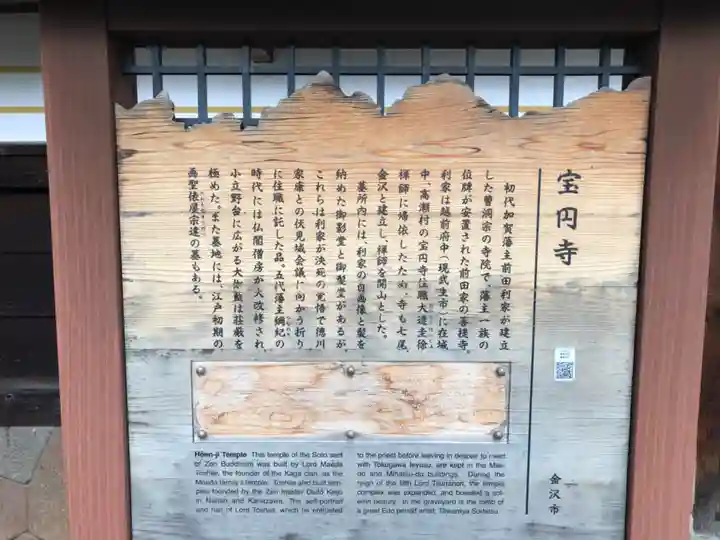 宝円寺
初代加賀藩主前田利家が建立
した曹洞宗の寺院で、藩主一族の
位牌が安置された前田家の菩提寺。
利家は越前府中(現武生市)に在城
中、高瀬村の宝円寺住職大透圭徐
禅師に帰依したため、寺も七尾、
金沢と建立し、禅師を開山とした。
墓所内には、利家の自画像と髪を
納めた御影堂と御髪堂があるが、
これらは利家が決死の覚悟で徳川
家康との伏見城会議に向かう折り
に住職に託した品。五代藩主綱紀の
時代には仏閣僧房が大改修され、
小立野台に広がる大伽藍は荘厳を
極めた。また墓地には、江戸初期の
画聖俵屋宗達の墓もある。
Hōen-ji Temple This temple of the Soto sect
of Zen Buddhism was built by Lord Maeda
Toshiie, the founder of the Kaga clan, as the
Maeda family's temple. Toshiie also built tem-
ples founded by the Zen master Daitō Keijo
in Nanao and Kanazawa. The self-portrait
and hair of Lord Toshiie, which he entrusted
to the priest before leaving in despair to meet
with Tokugawa Ieyasu, are kept in the Miei-
do and Mihatsu-do buildings. During the
reign of the fifth Lord Tsunanori, the temple
complex was expanded, and boasted a sol-
emn beauty. In the graveyard is the tomb of
a great Edo period artist, Tawaraya Sōtatsu.
金沢市